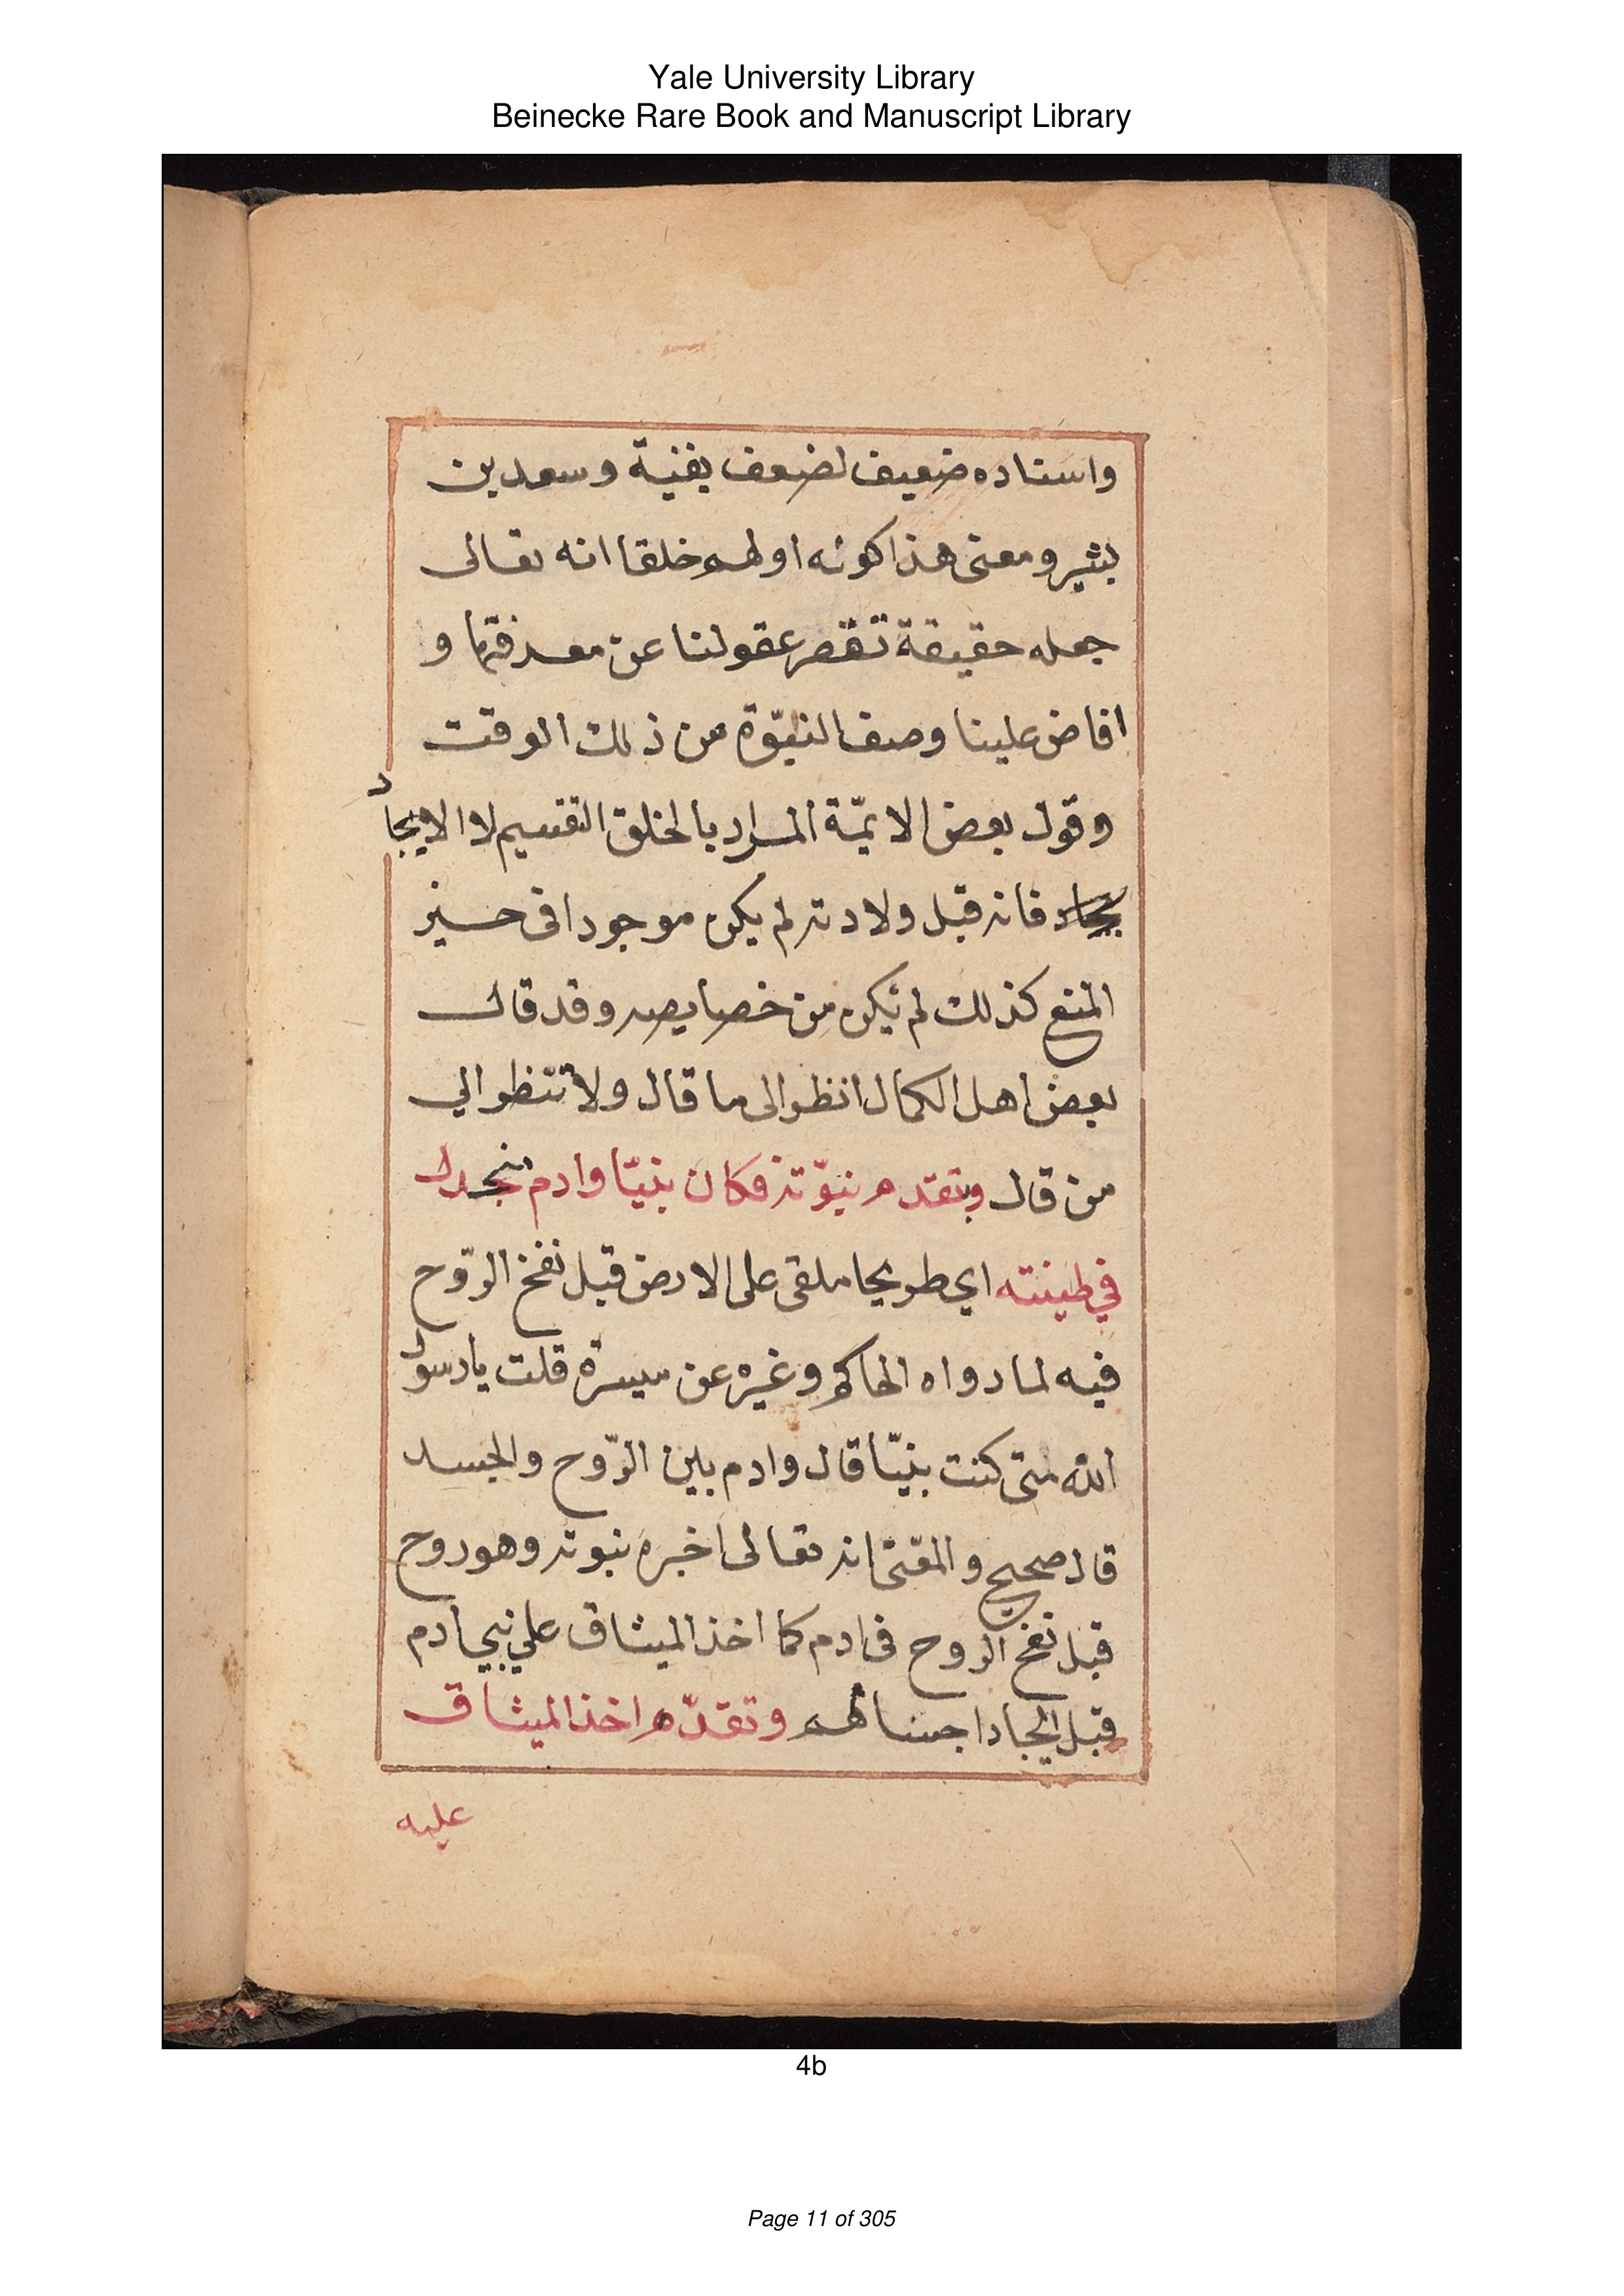 Yale University Library
Beinecke Rare Book and Manuscript Library
واسناده ضعيف لضعف بقنية وسعد بن
بشير ومعنى هذا كونه اولهم خلقا انه تعالى
جعله حقيقة تقصر عقولنا عن معرفتها و
افاض علينا وصف النبوّة من ذلك الوقت
وقول بعض الايمّة المراد بالخلق التقسيم لا الايجاد
فانه قبل ولادته لم يكن موجودا فى حسيز
المنع كذلك لم تكن من خصايصه وقد قال
بعض اهل الكمال انظر الى ما قال ولا تنظر الي
من قال وبتقدم نبوّته فكان نبيّا وادم منجدل
في طينته اي طريحا ملقى على الارض قبل نفخ الرّوح
فيه لما رواه الحاكم وغيره عن ميسرة قلت يا رسول
الله متى كنت نبيّا قال وادم بين الرّوح والجسد
قال صحيح والمعنى انه تعالى اخبره بنبوته وهو روح
قبل نفخ الروح فى ادم كما اخذ الميثاق علي بني ادم
قبل ايجاد اجسالهم وتقدّم اخذ الميثاق
عليه
4b
Page 11 of 305